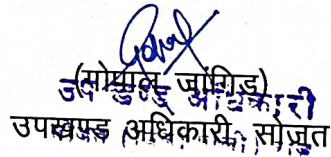 (गोपाल जांगिड़)
उप खण्ड अधिकारी
उपखण्ड अधिकारी, सोजत